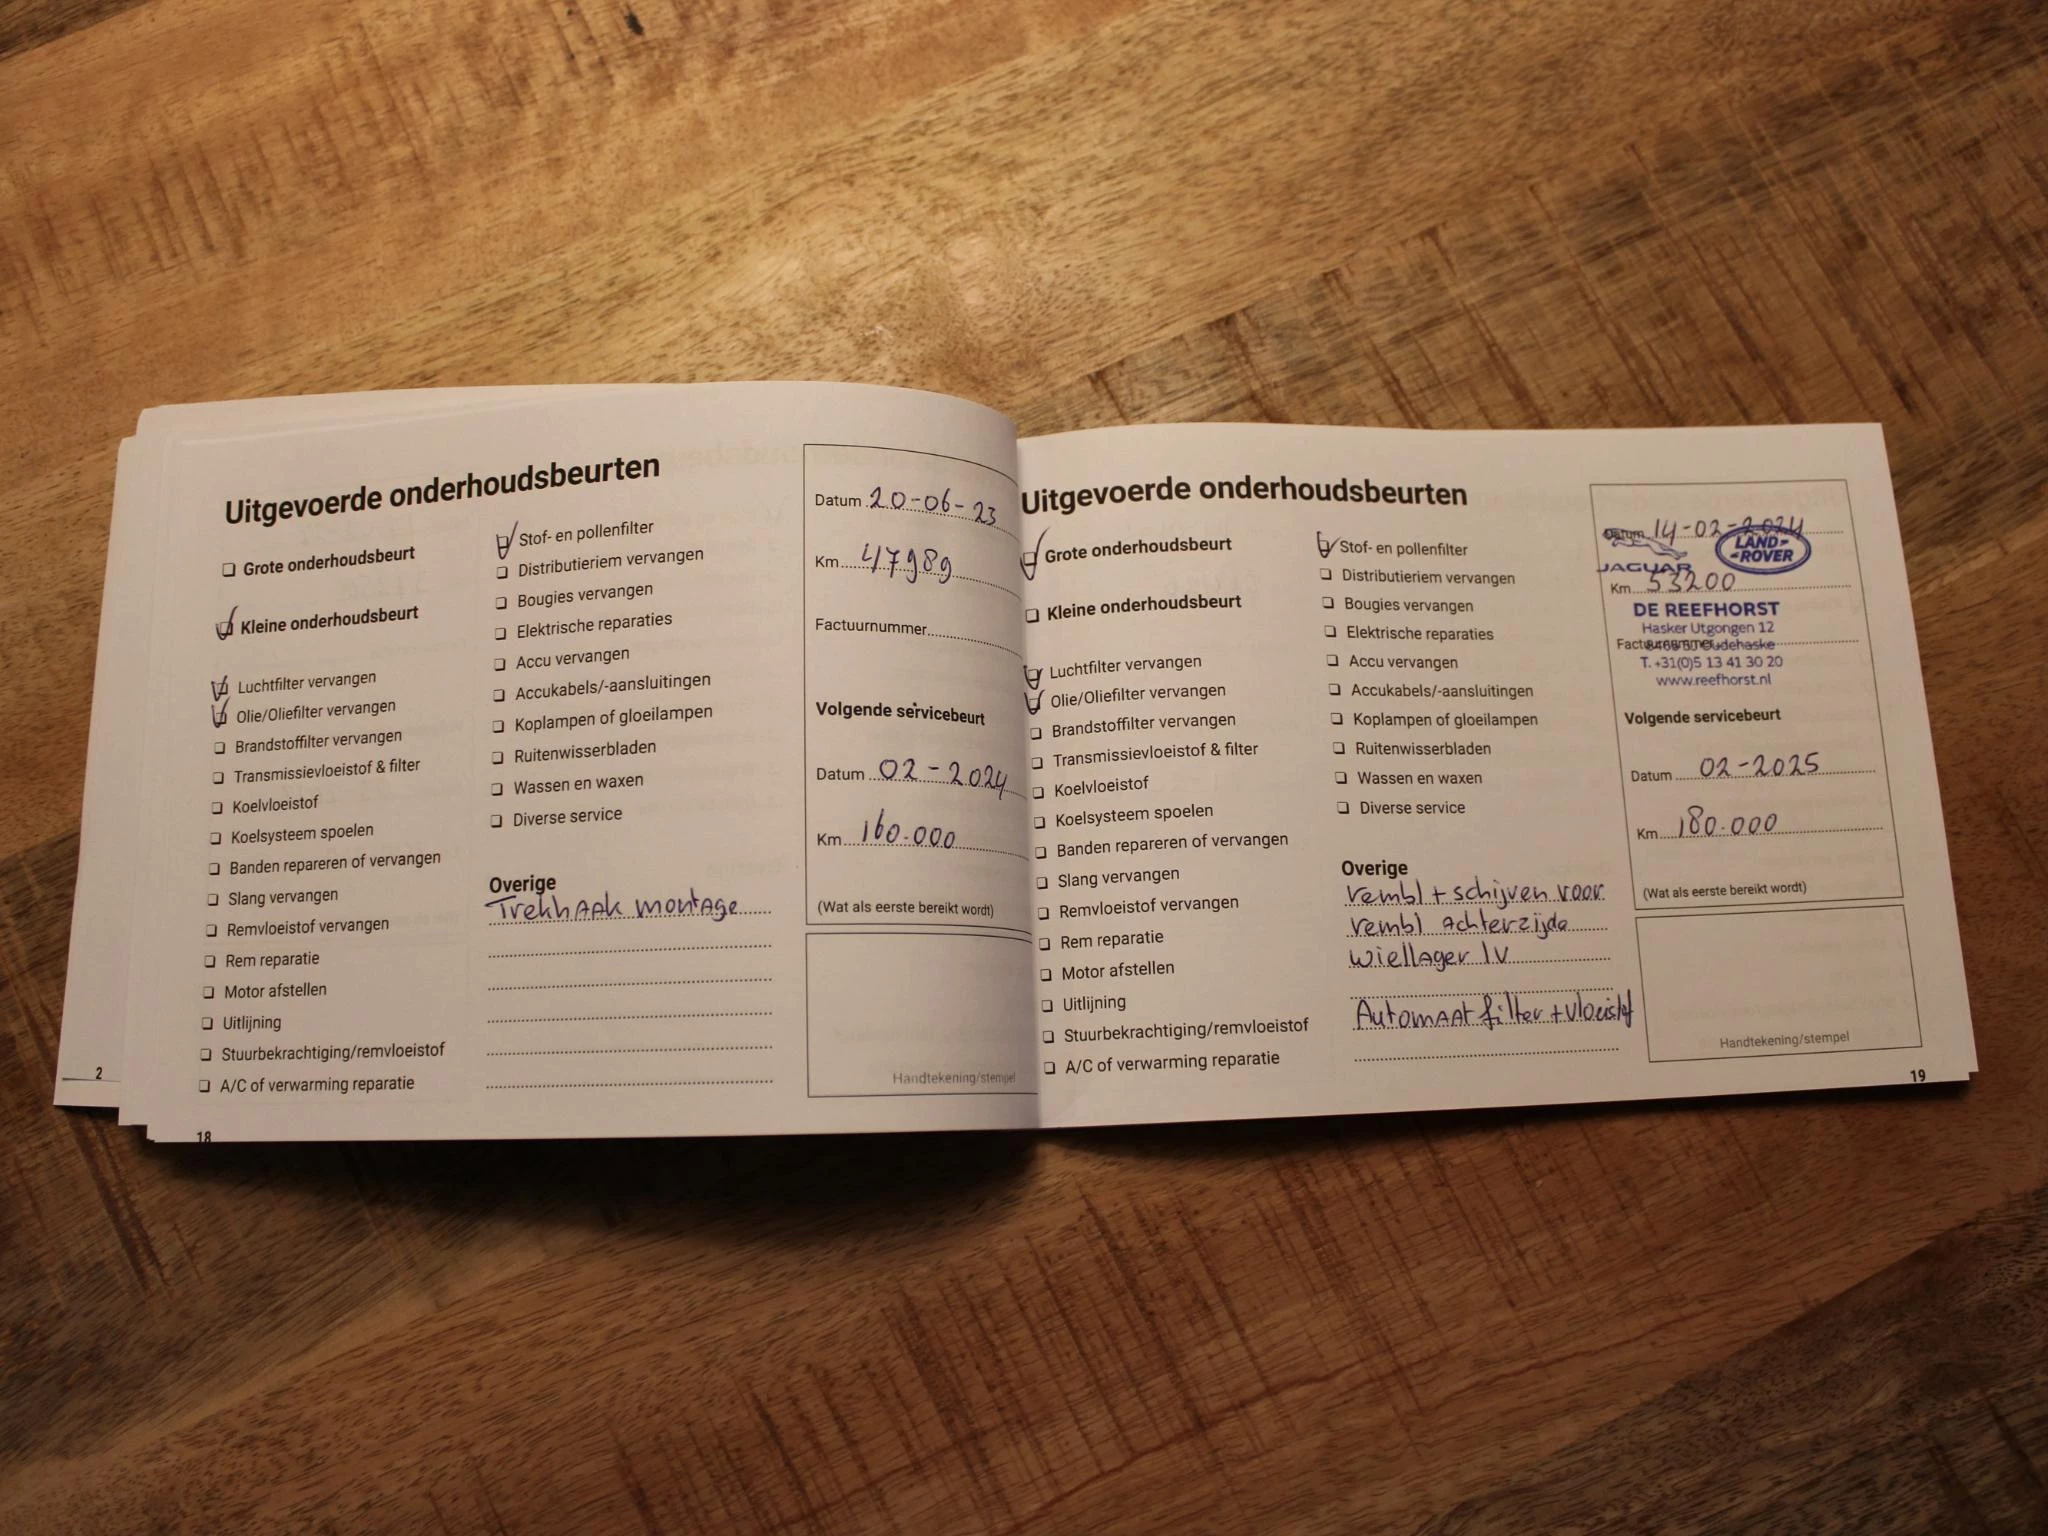 Uitgevoerde onderhoudsbeurten
Grote onderhoudsbeurt
Kleine onderhoudsbeurt
Luchtfilter vervangen
Olie/Oliefilter vervangen
Brandstoffilter vervangen
Transmissievloeistof & filter
Koelvloeistof
Koelsysteem spoelen
Banden repareren of vervangen
Slang vervangen
Remvloeistof vervangen
Rem reparatie
Motor afstellen
Uitlijning
Stuurbekrachtiging/remvloeistof
A/C of verwarming reparatie
Stof- en pollenfilter
Distributieriem vervangen
Bougies vervangen
Elektrische reparaties
Accu vervangen
Accukabels/-aansluitingen
Koplampen of gloeilampen
Ruitenwisserbladen
Wassen en waxen
Diverse service
Overige
Trekhaak montage
Datum 20-06-23
Km 47989
Factuurnummer
Volgende servicebeurt
Datum 02-2024
Km 160.000
(Wat als eerste bereikt wordt)
Handtekening/stempel
2
18
Uitgevoerde onderhoudsbeurten
Grote onderhoudsbeurt
Kleine onderhoudsbeurt
Luchtfilter vervangen
Olie/Oliefilter vervangen
Brandstoffilter vervangen
Transmissievloeistof & filter
Koelvloeistof
Koelsysteem spoelen
Banden repareren of vervangen
Slang vervangen
Remvloeistof vervangen
Rem reparatie
Motor afstellen
Uitlijning
Stuurbekrachtiging/remvloeistof
A/C of verwarming reparatie
Stof- en pollenfilter
Distributieriem vervangen
Bougies vervangen
Elektrische reparaties
Accu vervangen
Accukabels/-aansluitingen
Koplampen of gloeilampen
Ruitenwisserbladen
Wassen en waxen
Diverse service
Overige
rembl + schijven voor
rembl achterzijde
wiellager lv
Automaat filter + vloeistof
Datum 14-02-2024
JAGUAR
LAND-
-ROVER
Km 53200
DE REEFHORST
Hasker Utgongen 12
Factuurnummer
Oudehaske
T. +31(0)5 13 41 30 20
www.reefhorst.nl
Volgende servicebeurt
Datum 02-2025
Km 180.000
(Wat als eerste bereikt wordt)
Handtekening/stempel
19